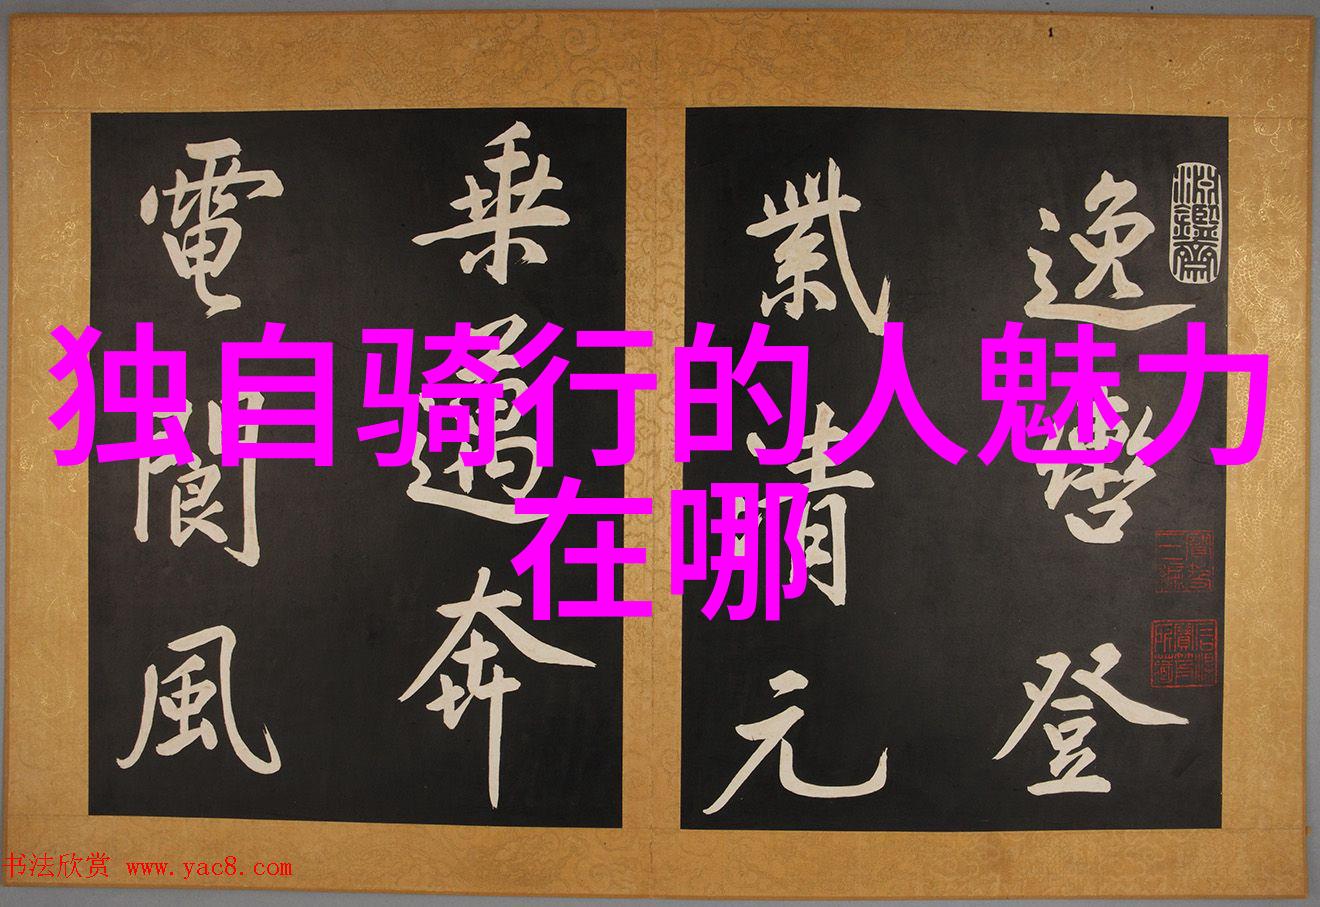 独自骑行的人魅力
在哪
逸辔登
紫清元
乘遏奔
電閬風
淳鑑齋
书法欣赏 www.yac8.com